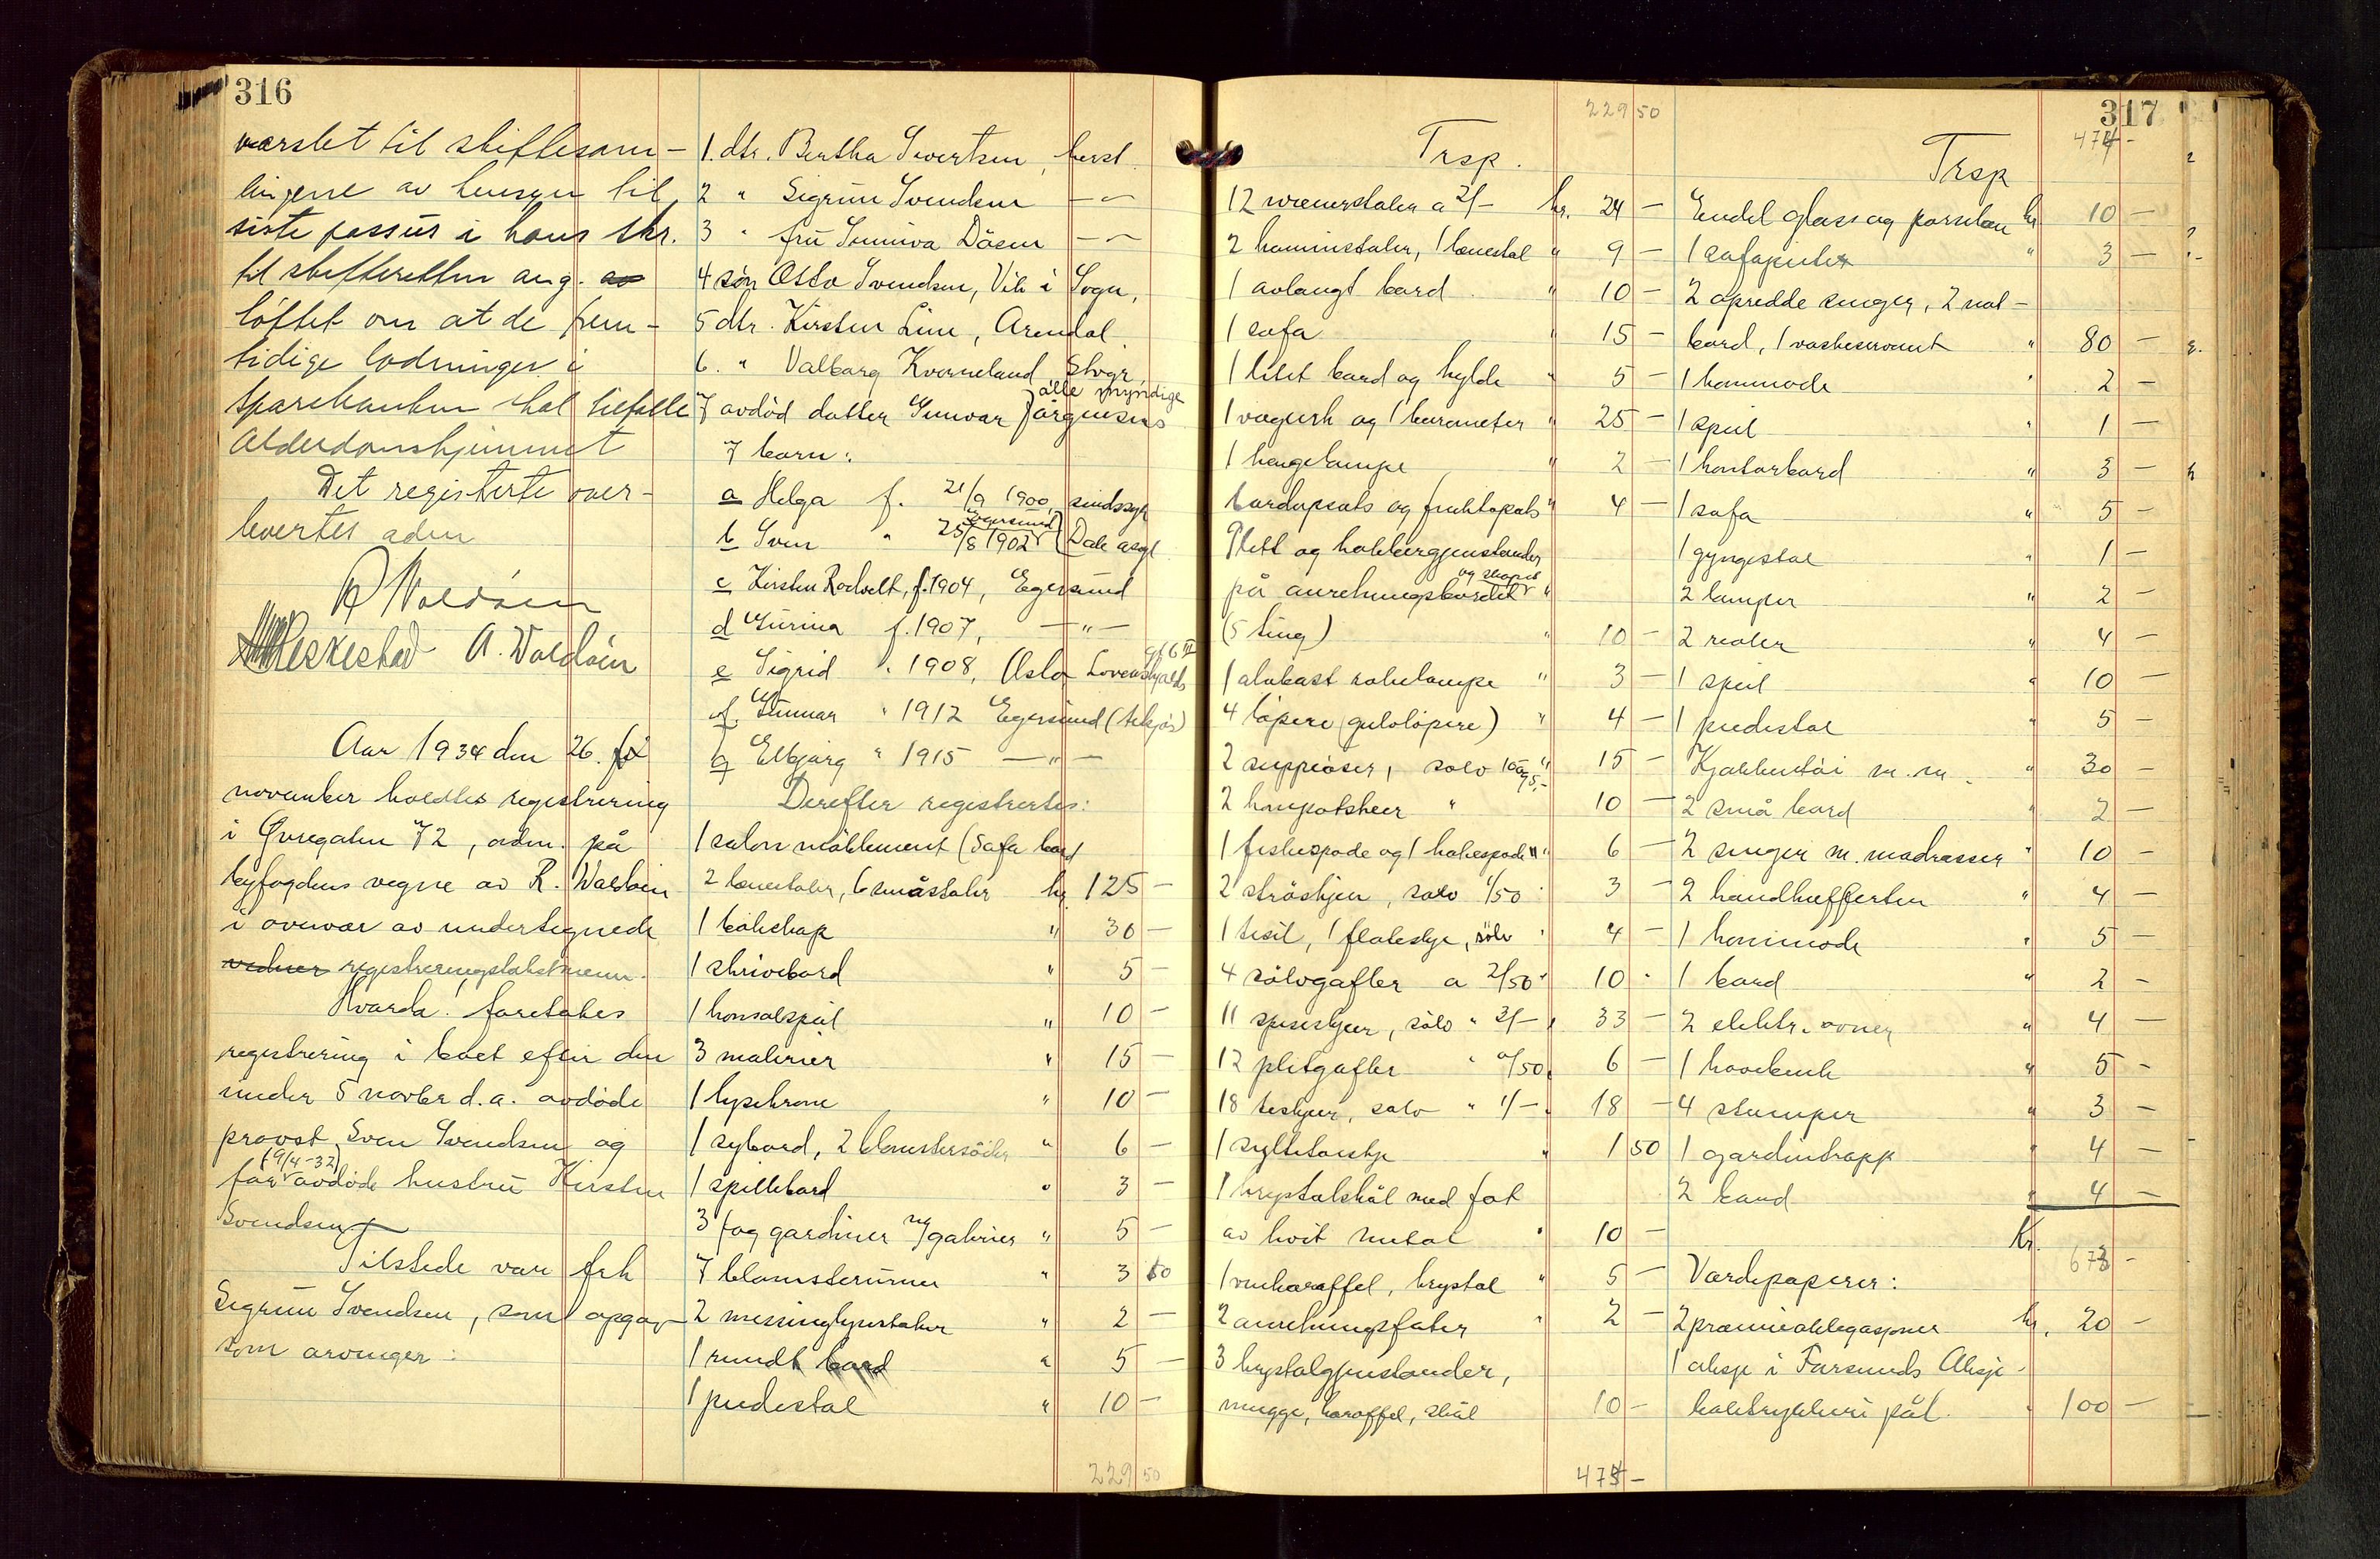 316
varslet til skiftesam-
lingene av hensyn til
siste passus i hans skr.
til skifteretten ang. av
löftet om at de frem-
tidige lodninger i
Sparebanken skal tilfalle
Alderdomshjemmet
Det registerte over-
levertes adm
R Waldsen
Reskestad A. Waldsen
Aar 1934 den 26. fö
november holdtes registrering
i Øvregaten 72, adm. på
byfogdens vegne av R. Waldsen
i overvær av undertegnede
vidner registreringstakstmenn.
Hvorda! foretokes
registrering i boet efter den
under 5 novbr d.a. avdöde
provst Sven Svendsen og
(9/4-32)
før avdöde hustru Kirsten
Svendsen
Tilstede var frk
Sigrun Svendsen, som opgav
som arvinger:
1. dtr. Bertha Sivertsen, herst.
2 " Sigrun Svendsen -"-
3 " fru Sunniva Dåsen -"-
4 sön Otto Svendsen, Vik i Sogn,
5 dtr. Kirsten Line, Arendal.
6. " Valborg Kverneland Stvgr,
alle myndige
7 avdöd datter Gunvor Jörgensens
7 barn:
a Helga f. 21/9 1900, sindssyk
Egersund
b Sven " 25/8 1902 Dale asyl
c Kirsten Rodvelt, f. 1904, Egersund
d Gurina f. 1907, -"-
e Sigrid " 1908, Oslo Lovenskjolds
gt 6 II
f. Gunnar " 1912 Egersund (tilsjös)
g Elbjörg " 1915 -"-
Derefter registrertes:
1 salon möblement (Sofa bord
2 lenestoler, 6 småstoler kr. 125 -
1 bokskap " 30 -
1 skrivebord " 5 -
1 konsolspeil " 10 -
3 malerier " 15 -
1 lysekrone " 10 -
1 sybord, 2 blomstersöiler " 6 -
1 spillebord " 3 -
3 fag gardiner m/galerier " 5 -
7 blomsterurner " 3 50
2 messinglysestaker " 2 -
1 rundt bord " 5 -
1 piedestal " 10 -
229 50
229 50
Trsp.
12 wienerstoler a 2/- kr. 24 -
2 kaminstoler, 1 lenestol " 9 -
1 avlangt bord " 10 -
1 sofa " 15 -
1 litet bord og hylde " 5 -
1 vægurh og 1 barometer " 25 -
1 hengelampe " 2 -
bordopsats og fruktopsats " 4 -
Plett og nakkergjenstander
og skapet
på anretningsbordet "
(5 ting) " 10 -
1 alabast salelampe " 3 -
4 löpere (gulvlöpere) " 4 -
2 suppeöser, sölv 10 og 5,- " 15 -
2 kompotskeer " 10 -
1 fiskespade og 1 kakespade " " 6 -
2 ströskjeer, sölv 1/50 " 3 -
1 tesil, 1 flöteskje, sölv " 4 -
4 sölvgafler a 2/50 " 10 -
11 spiseskjeer, sölv " 3/- " 33 -
12 pletgafler " 0/50 " 6 -
18 teskjeer, sölv " 1/- " 18 -
1 syltetöiskje " 1 50
1 krystalskål med fat
av hvit metal " 10 -
1 vinkaraffel, krystal " 5 -
2 anretningsfater " 2 -
3 krystalgjenstander,
mugge, karaffel, skål 10 -
474 -
317
474 -
Trsp
Endel glass og porselen kr 10 -
1 sofaputer " 3 -
2 opredde senger, 2 nat-
bord, 1 vaskeservant " 80 -
1 kommode " 2 -
1 speil " 1 -
1 kontorbord " 3 -
1 sofa " 5 -
1 gyngestol " 1 -
2 lamper " 2 -
2 reoler " 4 -
1 speil " 10 -
1 piedestal " 5 -
Kjökkentöi m.m. " 30 -
2 små bord " 2 -
2 senger m. madrasser " 10 -
2 håndkufferter " 4 -
1 kommode " 5 -
1 bord " 2 -
2 elektr. ovner " 4 -
1 havebenk " 5 -
4 stumper " 3 -
1 gardintrapp " 4 -
2 bord " 4 -
Kr. 673 -
Værdipapirer:
2 præmieobligasjoner kr. 20 -
1 aksje i Farsunds Aksje-
boktrykkeri pål. " 100 -